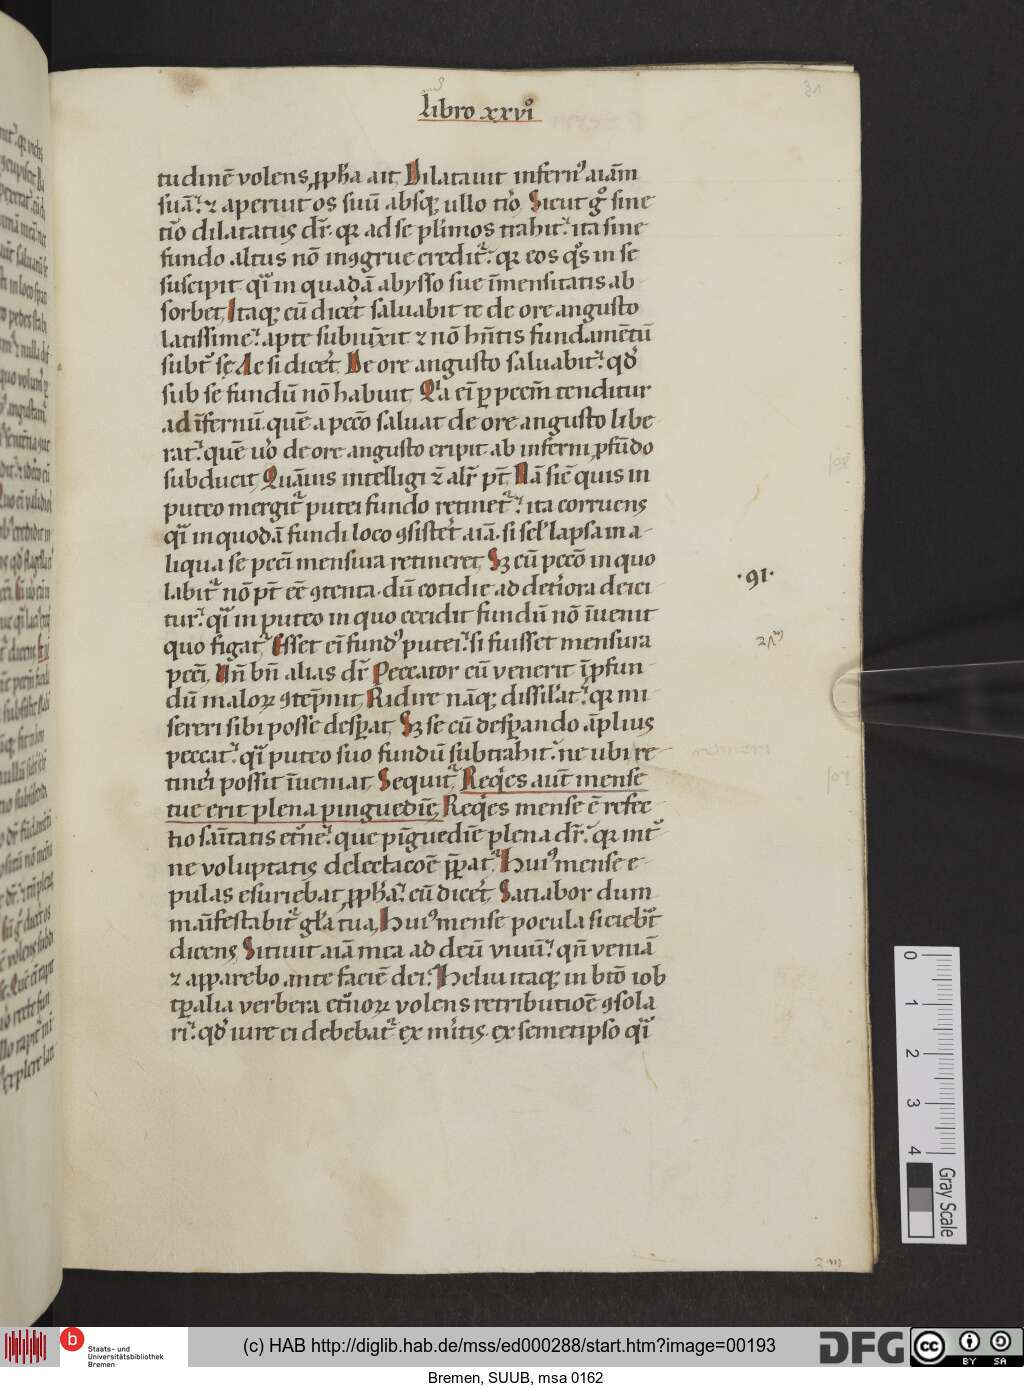 libro xxviº
tudinē volens, ꝓph̄a ait, Dilatauit infernꝰ aiām
suā, ⁊ aperuit os suū absqꝫ ullo t̄io, Sicut gͦ sine
t̄io dilatatus dr̄. qꝛ ad se plīmos trahit, ita sine
fundo altus nō inꝯgrue credit᷑. qꝛ eos qͦs in se
suscipit qͣi in quadā abysso sue īmensitatis ab
sorbet, Itaqꝫ cū dicet᷑ saluabit te de ore angusto
latissime, apte subiūxit ⁊ nō hn̄tis fundamētū
subt᷑ sę Ac si dicet᷑, De ore angusto saluabit, qd̓
sub se fundū nō habuit, Qͥa eī ꝑ pccm̄ tenditur
ad īfernū. quē a pcc̄o saluat de ore angusto libe
rat, quē u̓o de ore angusto eripit ab inferni ꝓfūdo
subducit, Quāuis intelligi ⁊ alr̄ pt̄, Nā sic̄ quis in
puteo mergit᷑ putei fundo retinet᷑, ita corruens
qͣi in quodā fundi loco ꝯsistet᷑ aiā. si sel̄ lapsa in a-
liqua se pccī mensura retineret, Sꝫ cū pcc̄o in quo
labit᷑ nō pt̄ eē ꝯtenta. dū cotidie ad det᷑iora deici
tur, qͣi in puteo in quo cecidit fundū nō īuenit
quo figat᷑, Esset eī fundꝰ putei, si fuisset mensura
pccī, Un̄ bn̄ alias dr̄ Peccator cū venerit ī ꝓfun-
dū maloꝝ ꝯtēpnit, Ridire nāqꝫ dissil̓at, qꝛ mi-
sereri sibi posse desꝑat, Sꝫ se cū desꝑando āplius
peccat, qͣi puteo suo fundū subtrahit, ne ubi re-
tineri possit īueniat Sequit᷑, Reqͥes aut̄ mense
tue erit plena pinguedīe, Reqͥes mense ē refec-
tio saītatis et̄ne, que pīguedīe plena dr̄, qꝛ int᷑
ne voluptatis delectacōē p̄ꝑat᷑, Huiꝰ mense e-
pulas esuriebat ꝓph̄a, cū dicet᷑, Satiabor dum
maīfestabit᷑ gl̄a tua, Huiꝰ mense pocula siciebat᷑
dicens, Sitiuit aiā mea ad deū viuū, qn̄ veniā
⁊ apparebo ante faciē dei, Heliu itaqꝫ in bt̄o iob
tꝑalia verbera et̄noꝝ volens retributiōē ꝯsola
ri, qd̓ iure ei debebat᷑ ex m᷑itis. ex semetipso qͣi
·91·
31
0
1
2
3
4
Gray Scale
Staats- und
Universitätsbibliothek
Bremen
(c) HAB http://diglib.hab.de/mss/ed000288/start.htm?image=00193
DFG
cc
BY SA
Bremen, SUUB, msa 0162